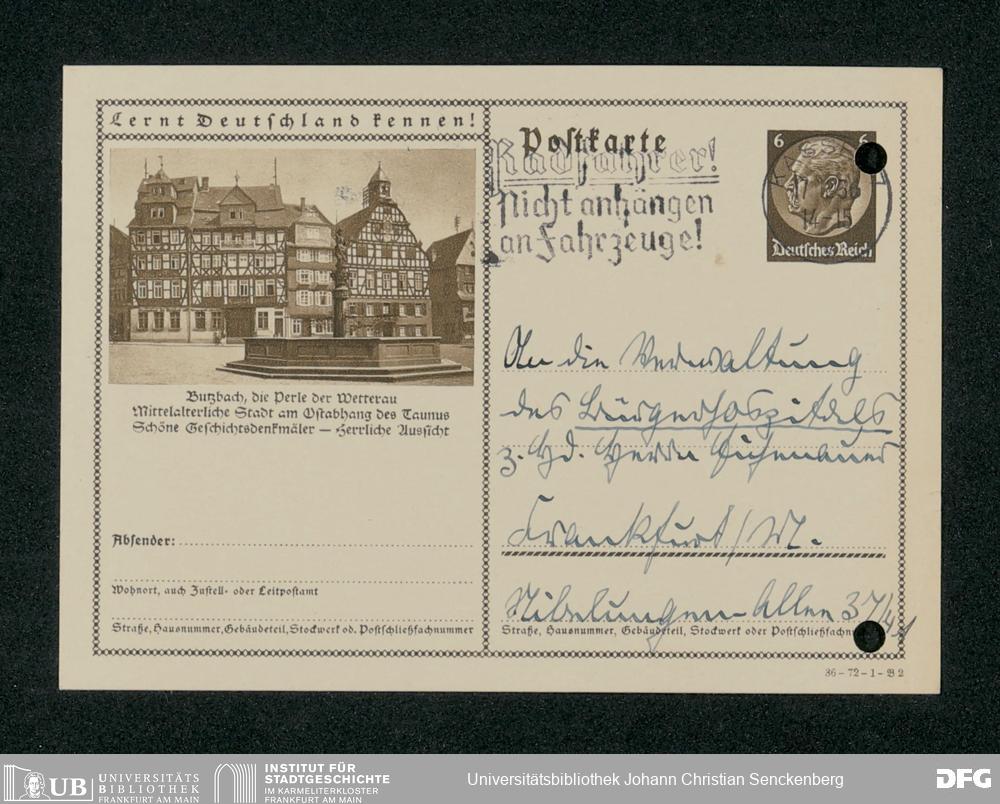 Lernt Deutschland kennen!
Butzbach, die Perle der Wetterau
Mittelalterliche Stadt am Ostabhang des Taunus
Schöne Geschichtsdenkmäler – Herrliche Aussicht
Absender:
Wohnort, auch Zustell- oder Leitpostamt
Straße, Hausnummer, Gebäudeteil, Stockwerk od. Postschließfachnummer
Postkarte
Radfahrer!
Nicht anhängen
an Fahrzeuge!
6 6
KASSEL
Deutsches Reich
An die Verwaltung
des Bürgerhospitals
z. Hd. Herrn
Frankfurt/M.
Nibelungen-Allee 37/41
Straße, Hausnummer, Gebäudeteil, Stockwerk oder Postschließfachnu
36–72–1–B 2
UB UNIVERSITÄTS
BIBLIOTHEK
FRANKFURT AM MAIN
INSTITUT FÜR
STADTGESCHICHTE
IM KARMELITERKLOSTER
FRANKFURT AM MAIN
Universitätsbibliothek Johann Christian Senckenberg
DFG